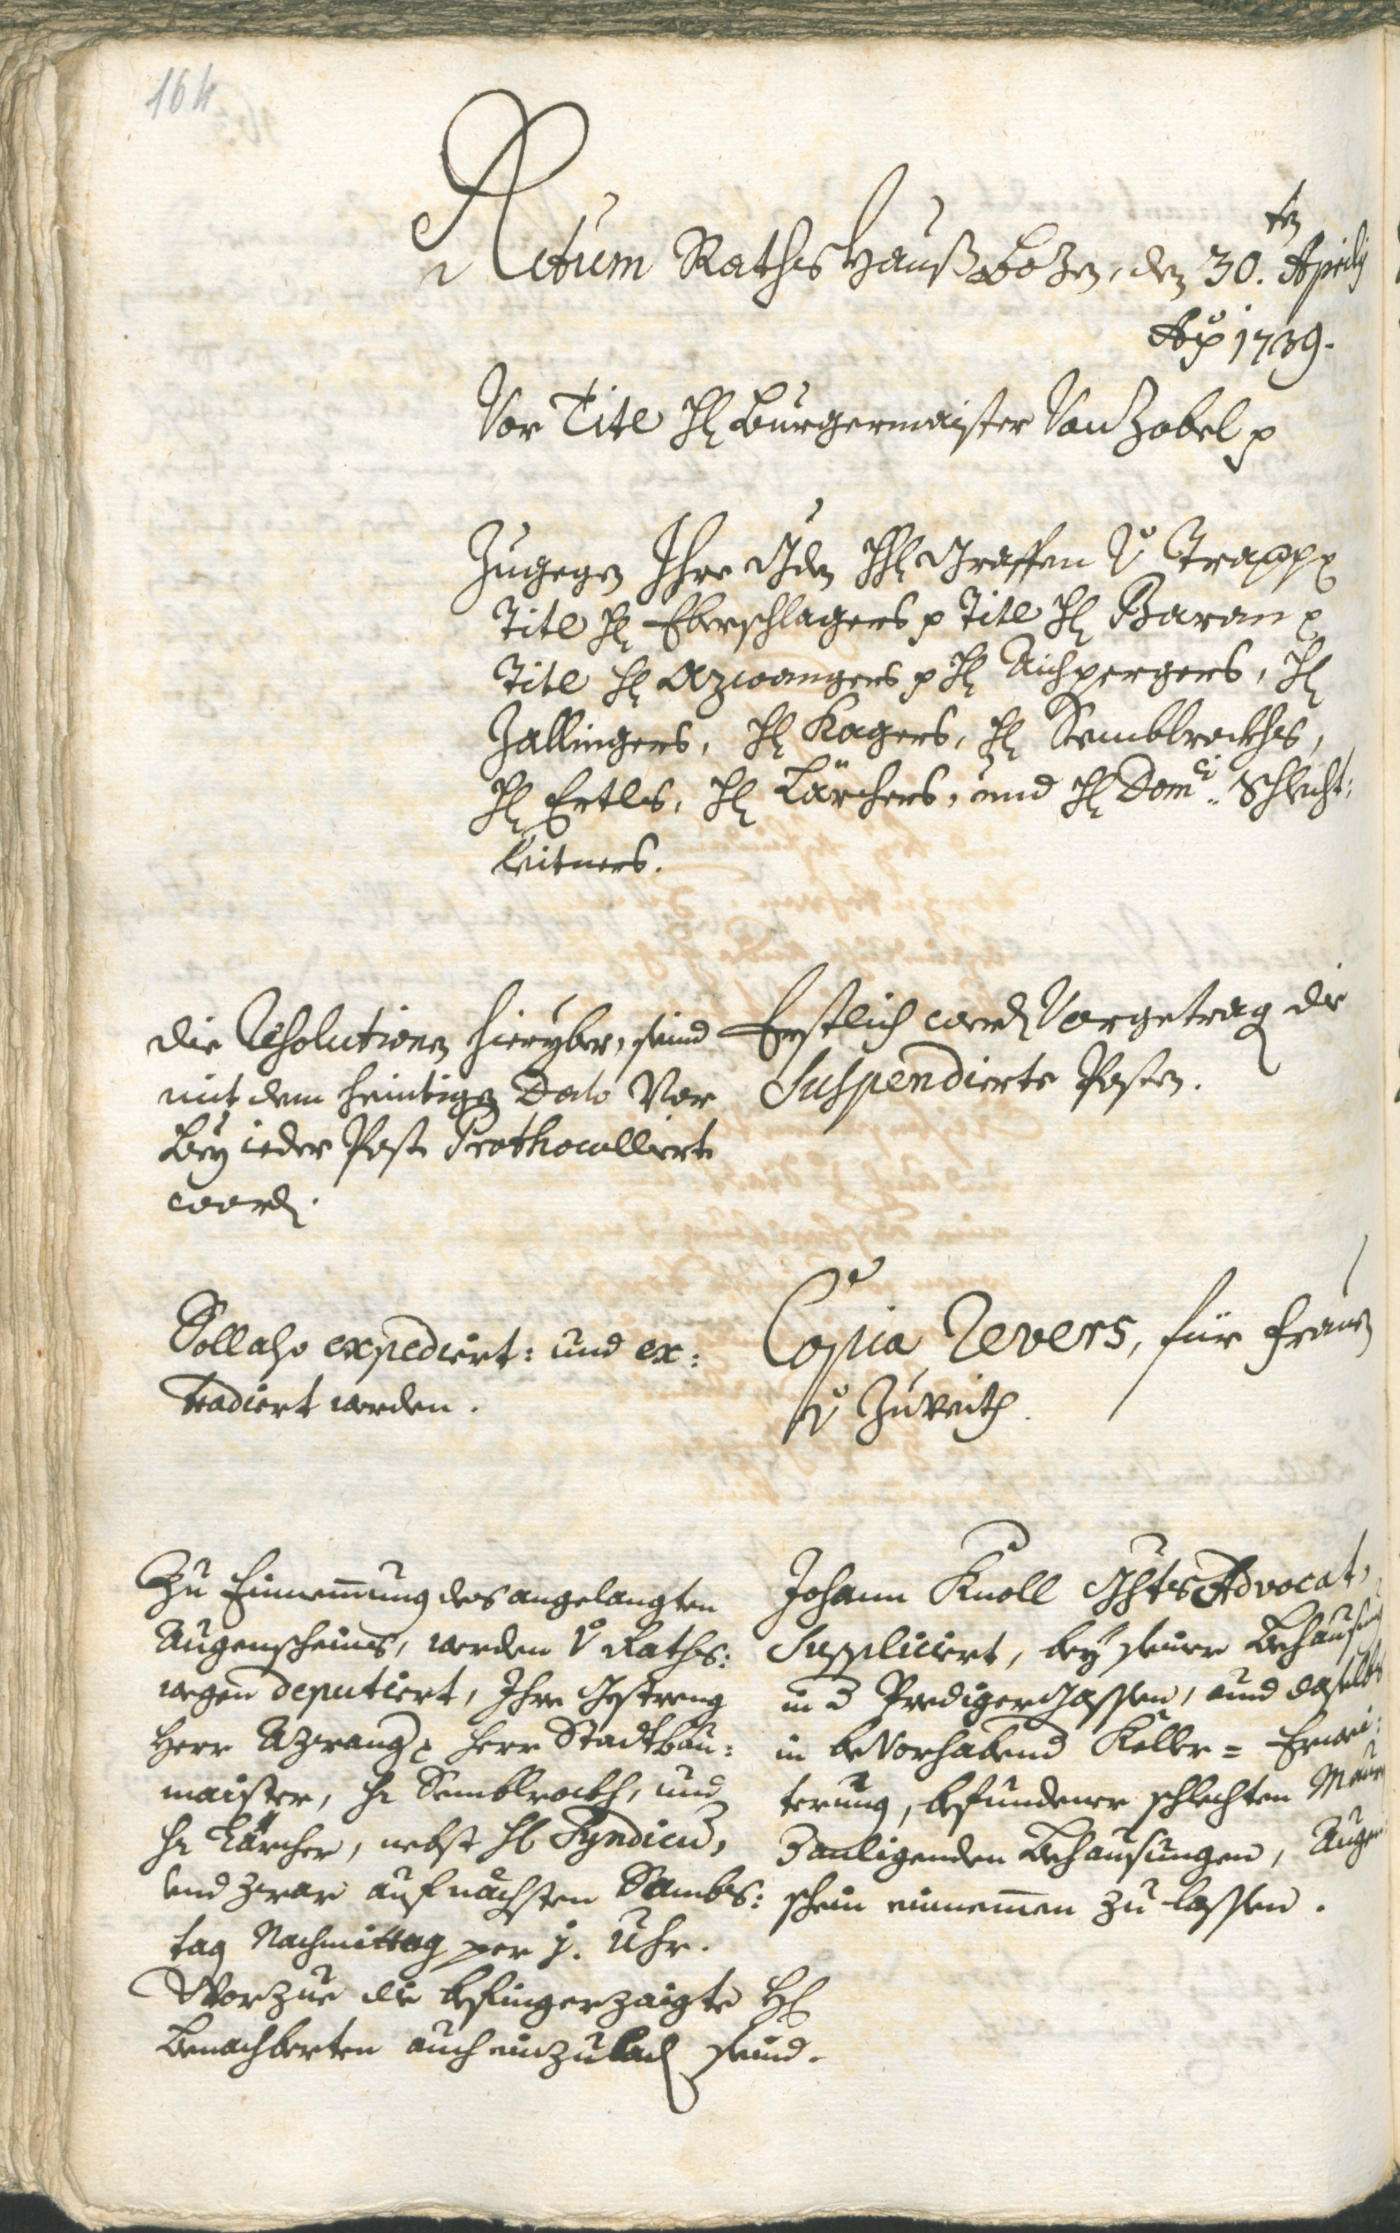 164
Actum Rathshauß Bozen, den 30.ten Aprily
Ao 1739.
Vor Titl H Burgermaister Von Zobel p
Zugegen Ihro Gden HH Graffen v Trapp p
Titl H Eberschlagers p Titl H Baron p
Titl H Azwangers p H Aichpergers, H
Zallingers, H Kagers, H Semblrockhs,
H Ertls, H Lärchers, und H Domci Schlecht:
leitners.
Die Resolutionen hieryber, seind
mit dem heintigen Dato Vor
bey ieder Post Prothocolliert
word.
Erstlich word Vorgetragen die
Suspendierte Posten.
Soll also expediert: und ex:
tradiert werden.
Copia Revers, für Franz
v Zuweith.
Zu Einnemung des angelangten
Augenscheins, werden v Raths:
wegen deputiert, Ihro Gestreng
Herr Azwang p Herr Stadtbau:
maister, H Semblrockh, und
H Lärcher, nebst H Syndicus,
und zwar auf nächsten Sambs:
tag Nachmittag per j. Uhr.
Worzue die befingerzaigte HH
Benachberten auch einzuladen seind.
Johann Knoll Ghts Advocat,
Suppliciert, bey seiner Behausung
in d Predigergassen, und daselbst
in beVorhabend Keller= Erwei:
terung, befundener schlechten Maur
3 anligenden Behausungen, Augen
schein einnemen zu lassen.